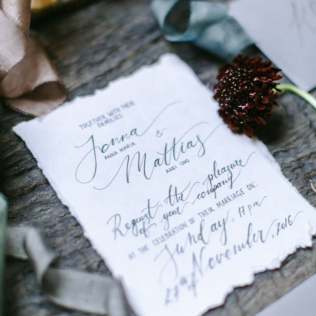 TOGETHER WITH THEIR
FAMILIES
Jonna
ANNA MARIA
&
Mattias
KARI UNO
Request the pleasure
of your company
AT THE CELEBRATION OF THEIR MARRIAGE ON:
Sunday, 17 p.m
27th November, 2016